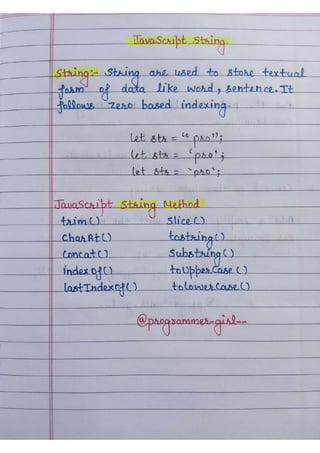 JavaScript String
String:- String are used to store textual
form of data like word, sentence. It
follows zero based indexing.
let str = "pro";
let str = 'pro';
let str = `pro`;
JavaScript String Method
trim() slice()
CharAt() tostring()
Concat() Substring()
indexOf() toUpperCase()
lastIndexOf() toLowerCase()
@programmer-girl--